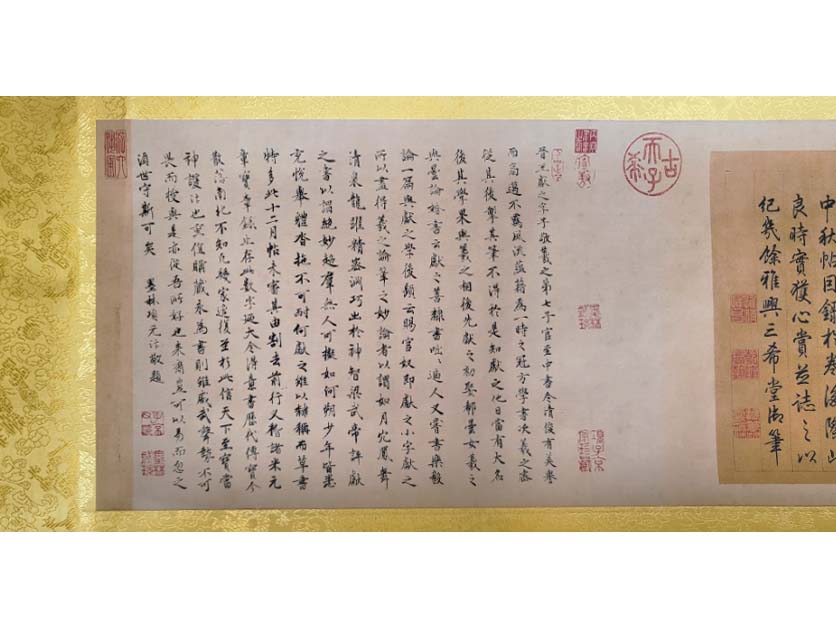 中秋帖因錄於卷後際此
良時實獲心賞並誌之以
紀幾餘雅興三希堂御筆
古希天子
晉王獻之字子敬羲之第七子官至中書令清俊有美譽
而高邁不羈風流蘊藉為一時之冠方學書次羲之密
從其後掣其筆不得於是知獻之他日當有大名
後其學果與羲之相後先獻之初娶郗曇女羲之
與曇論婚書云獻之善隸書咄咄逼人又嘗書樂毅
論一篇與獻之學後題云賜官奴即獻之小字獻之
所以盡得羲之論筆之妙論者以謂如丹穴鳳聲
清泉龍躍精密淵巧出於神智梁武帝評獻
之書以謂絕妙超羣無人可擬如河朔少年皆悉
充悅舉體沓拖不可耐何獻之雖以隸稱而草書
特多此十二月帖未審其由割去前行又暫諾米元
章寶章錄止存此數字迺大令得意書歷代傳寶今
散落南北不知凡幾家追復並於此信天下至寶當
神護訶也至復購藏永為書則雖威武聲勢不可
畏而授與是亦從吾所好也來裔豈可以易而忽之
須世守斯可矣 墨林項元汴敬題